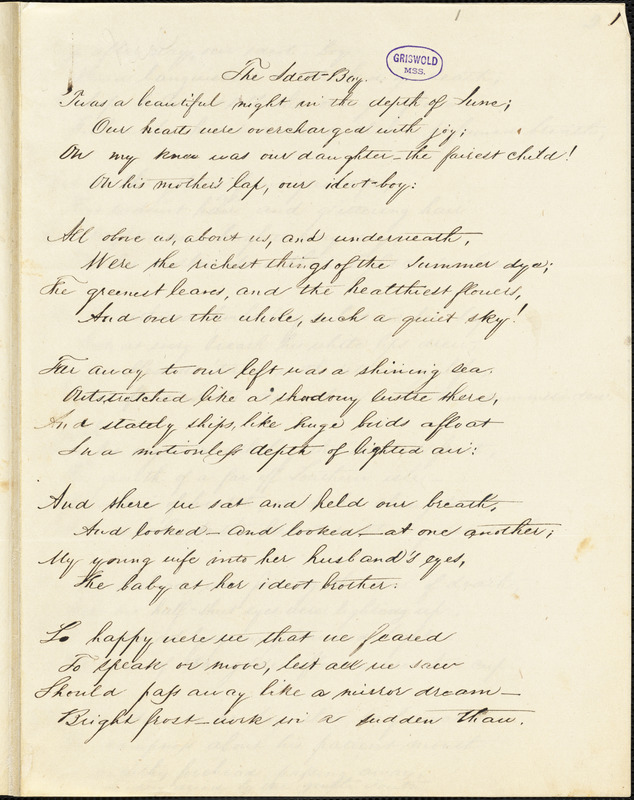 1
1
GRISWOLD
MSS.
The Ideot-Boy.
'Twas a beautiful night in the depth of June;
Our hearts were overcharged with joy;
On my knee was our daughter—the fairest child!
On his mother's lap, our ideot-boy:
All above us, about us, and underneath,
Were the richest things of the summer dye;
The greenest leaves, and the healthiest flowers,
And over the whole, such a quiet sky!
Far away to our left was a shining sea
Outstretched like a shadowy lustre there,
And stately ships, like huge birds afloat
In a motionless depth of lighted air:
And there we sat and held our breath,
And looked—and looked—at one another;
My young wife into her husband's eyes,
The baby at her ideot brother:
So happy were we that we feared
To speak or move, lest all we saw
Should pass away like a mirror dream—
Bright frost-work in a sudden thaw.